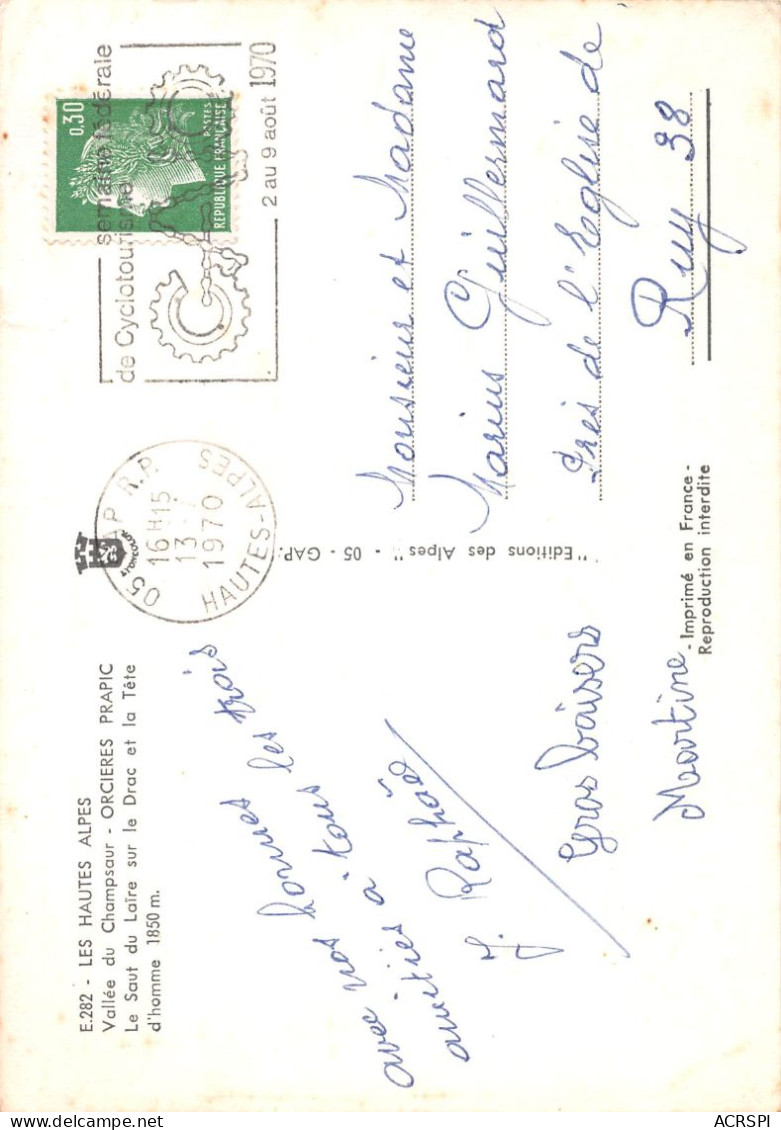 E.282 - LES HAUTES ALPES
Vallée du Champsaur - ORCIERES PRAPIC
Le Saut du Laire sur le Drac et la Tête
d'homme 1850 m.
avec nos bonnes
amitiés à tous les trois
J. Raphoz
Gros baisers
Martine
"Editions des Alpes" - 05 - GAP.
- Imprimé en France -
Reproduction interdite
05 GAP R.P.
16H15
13-7
1970
HAUTES-ALPES
semaine fédérale
de Cyclotourisme
2 au 9 août 1970
0,30
POSTES
REPUBLIQUE FRANÇAISE
Monsieur et Madame
Marius Guillermard
Près de l'Eglise de
Ruy 38
ACRSPI